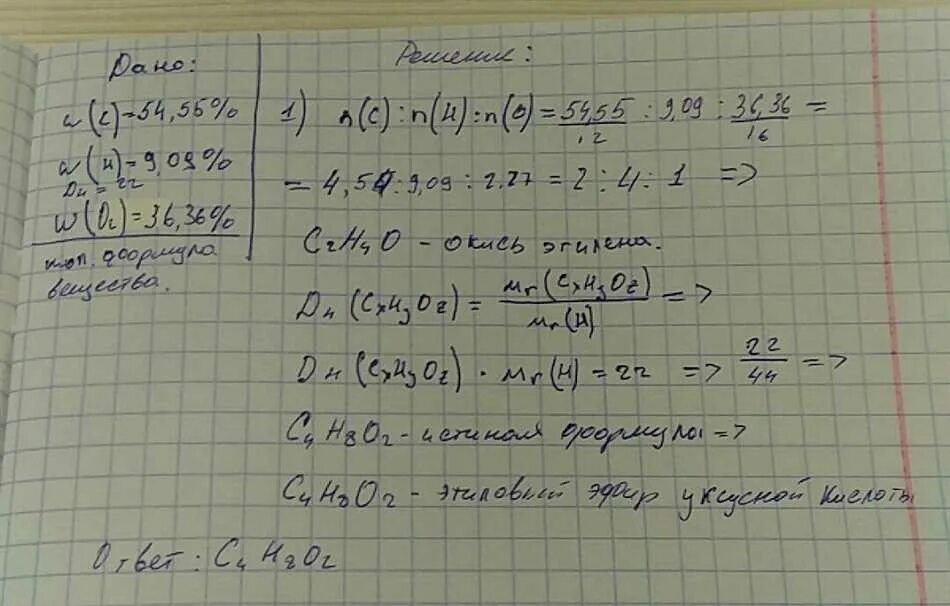 Дано:
w(C)=54,55%
w(H)=9,09%
Dн = 22
w(O₂)=36,36%
мол. формула
вещества.
Решение:
1) n(C):n(H):n(O)=54,55/12 : 9,09 : 36,36/16 =
= 4,54:9,09:2.27=2:4:1 =>
C₂H₄O - окись этилена.
Dн(CxHyOz)= Mr(CxHyOz)/Mr(H) =>
Dн(CxHyOz)·Mr(H)=22 => 22/44 =>
C₄H₈O₂ - формула =>
C₄H₈O₂ - этиловый эфир уксусной кислоты
Ответ: C₄H₈O₂